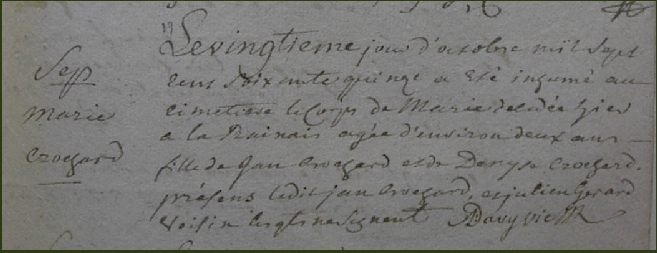 Sepp
marie
crochard
Le vingtieme jour d'octobre mil sept
cens soixante quinze a eté inhumé au
cimetiere le corps de Marie decedée hier
a la Rainais agée d'environ deux ans
fille de jan Crochard et de Denyse Crochard.
présens ledit jan Crochard, et julien Gerard
voisin lesquels ne signent Davy